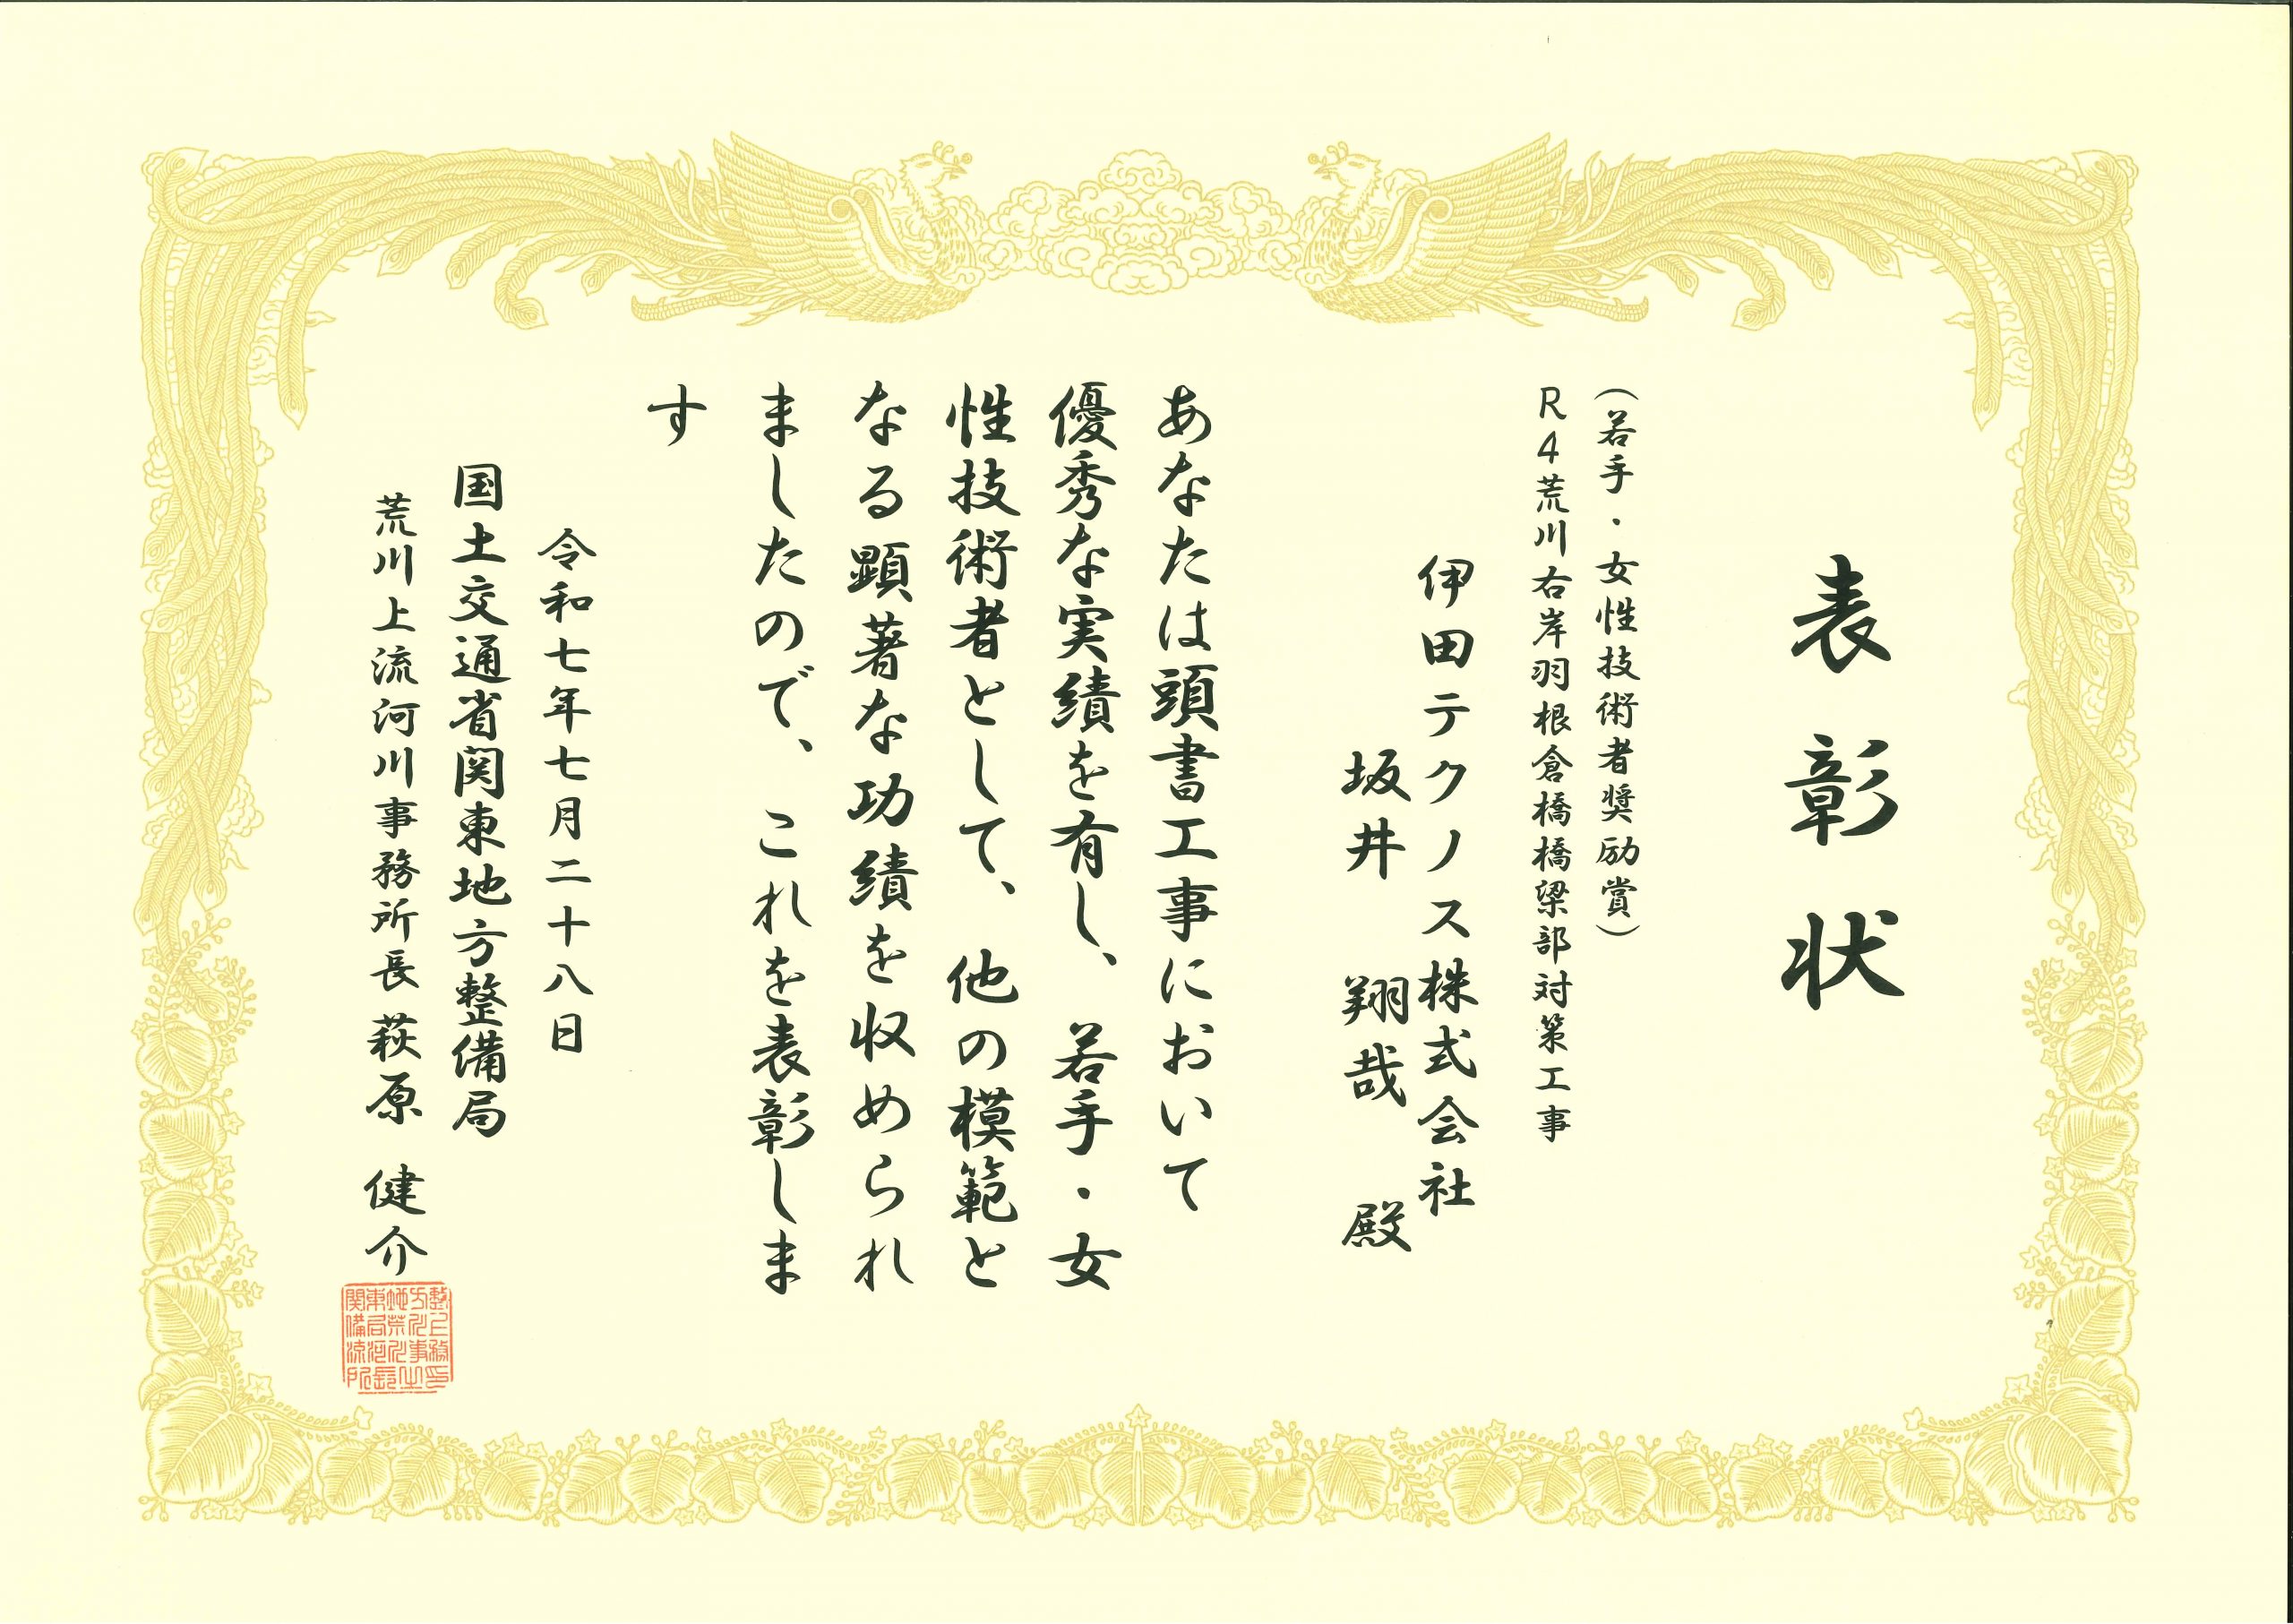 表彰状
（若手・女性技術者奨励賞）
R4荒川右岸羽根倉橋橋梁部対策工事
伊田テクノス株式会社
坂井 翔哉 殿
あなたは頭書工事において
優秀な実績を有し、若手・女
性技術者として、他の模範と
なる顕著な功績を収められ
ましたので、これを表彰しま
す
令和七年七月二十八日
国土交通省関東地方整備局
荒川上流河川事務所長 萩原 健介